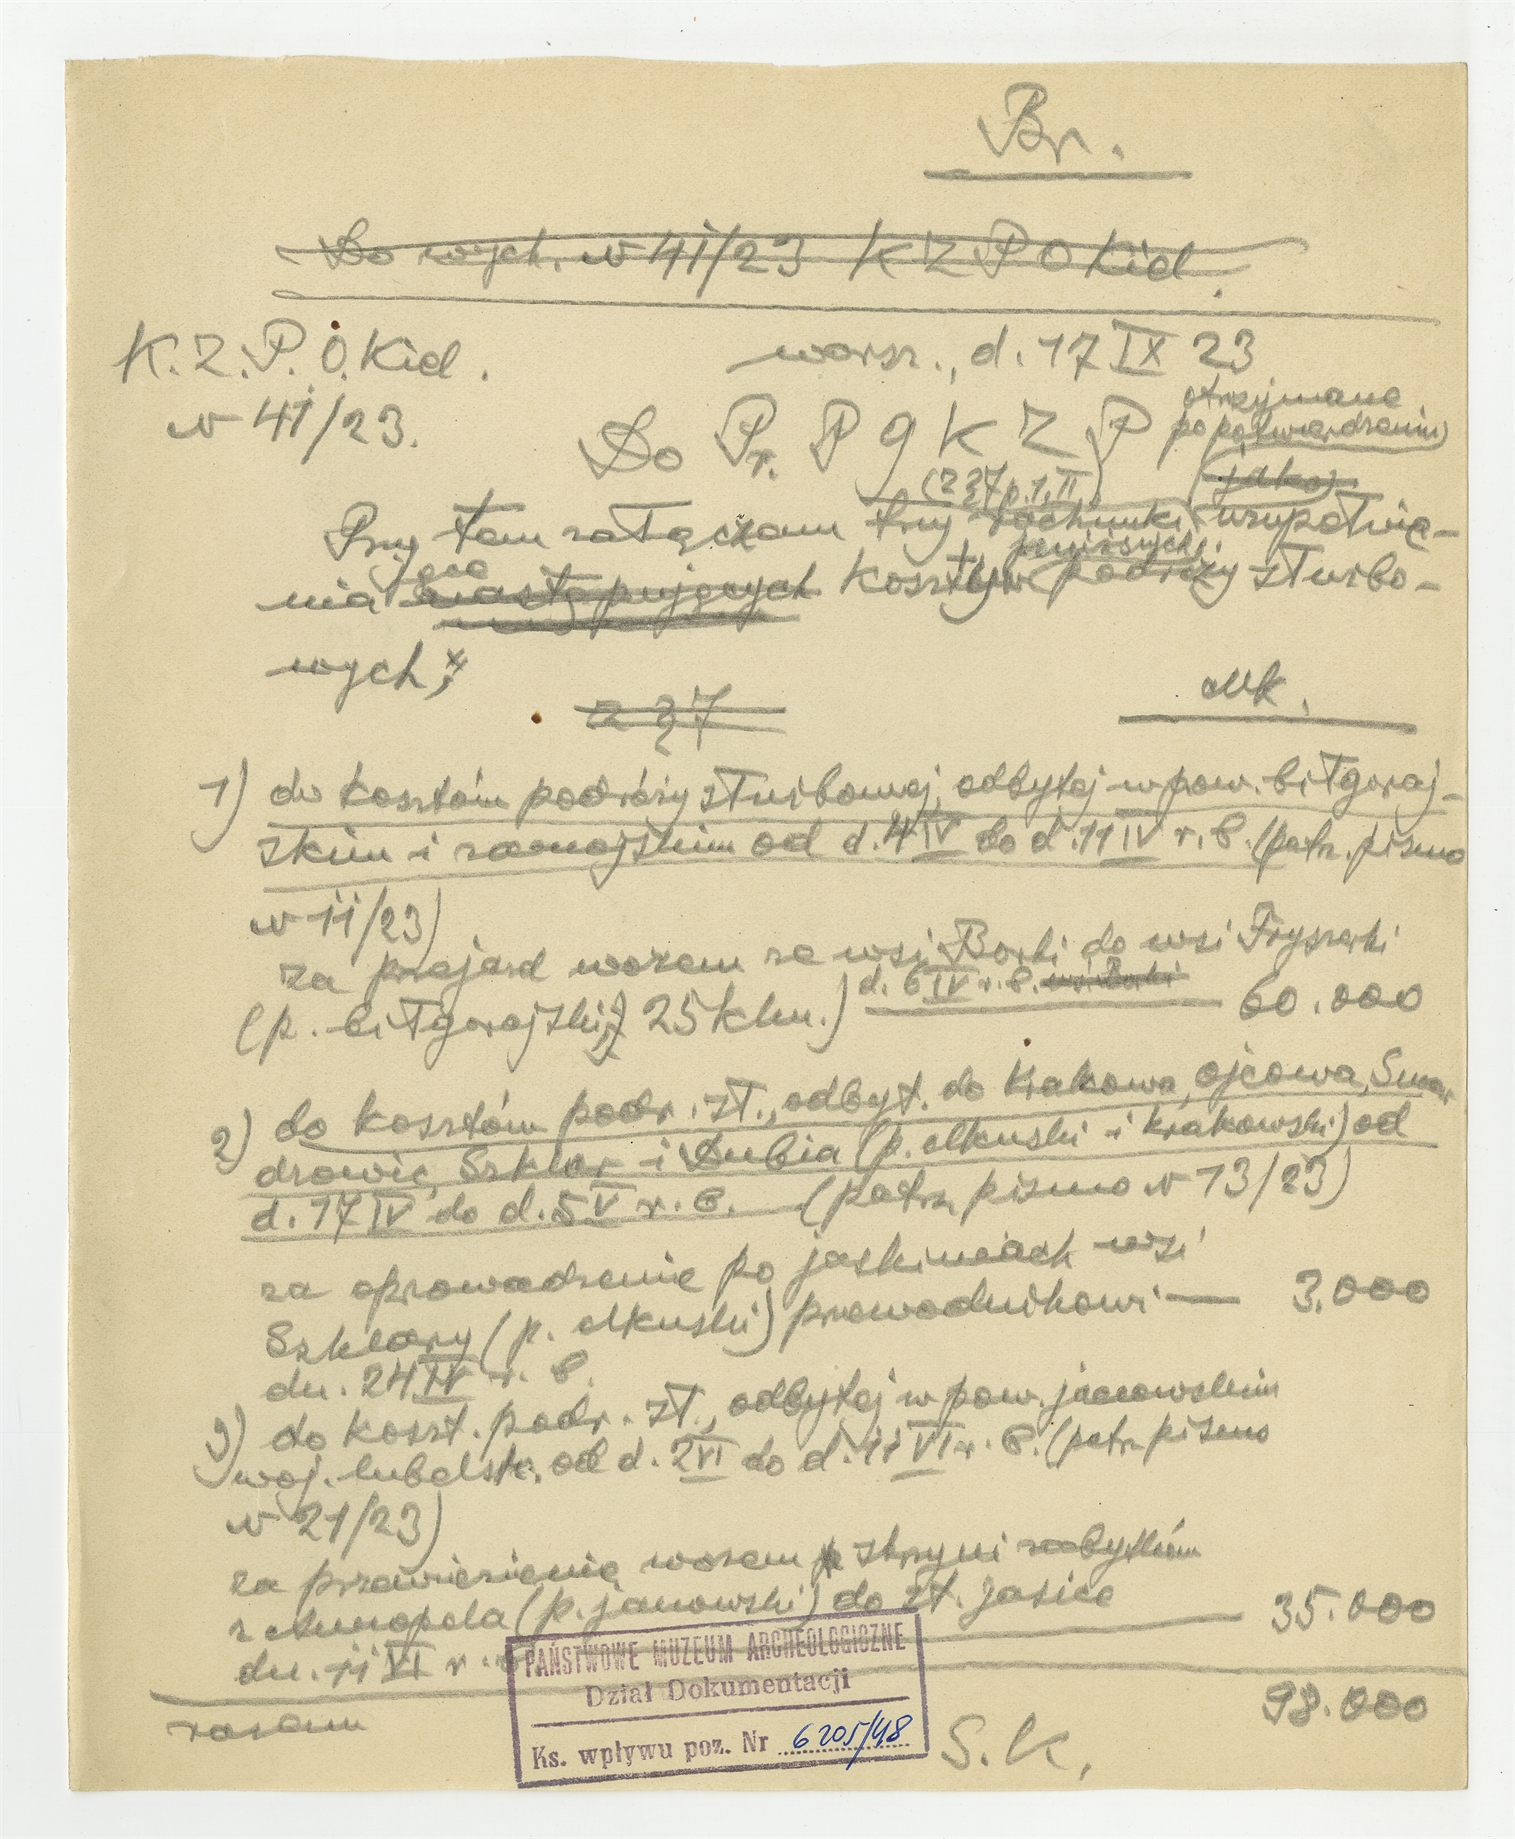 Br.
Do wych. N 41/23 K Z P O Kiel.
K.Z.P.O.Kiel.
warsz., d. 17 IX 23
N 41/23.
otrzymane
Do Pr. P G K Z P
po potwierdzeniu
(z § 7 p. 1, II)
jako
Przytem załączam trzy rachunki, uzupełnia-
niające następujących koszty podróży służbo-
wych;
z § 7
Mk.
1) do kosztów podróży służbowej, odbytej w pow. biłgoraj-
skim i zamojskim od d. 4 IV do d. 11 IV r. b. (patrz. pismo
N 11/23)
za przejazd wozem ze wsi Borki do wsi Fryszarki
(p. biłgorajski; 25 klm.) d. 6 IV r. b. wsi Borki 60.000
2) do kosztów podr. sł., odbyt. do Krakowa, Ojcowa, Smar
drowic, Szklar i Dubia (p. olkuski i krakowski) od
d. 17 IV do d. 5 V r. b. (patrz pismo N 13/23)
za oprowadzenie po jaskiniach wsi
Szklary (p. olkuski) przewodnikowi — 3.000
dn. 24 IV r. b.
3) do koszt. podr. sł., odbytej w pow. janowskim
woj. lubelsk. od d. 2 VI do d. 11 VI r. b. (patrz pismo
N 21/23)
za przewiezienie wozem skrzyni zabytków
z Annopola (p. janowski) do st. Jasice 35.000
dn. 11 VI r. b.
razem 98.000
S. K.
PAŃSTWOWE MUZEUM ARCHEOLOGICZNE
Dział Dokumentacji
Ks. wpływu poz. Nr 6205/48